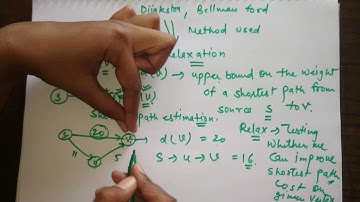 Dijkstra, Bellman ford
Method used
Relaxation
(v) → upper bound on the weight
of a shortest path from
source S to v.
shortest path estimation.
S 20 v d(v) = 20
11 5
S → u → v = 16
Relax → Testing
whether we
can improve
shortest path
cost on
given vertex